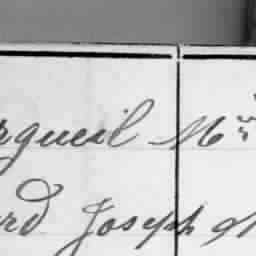 rgueil Mn
ard Joseph M